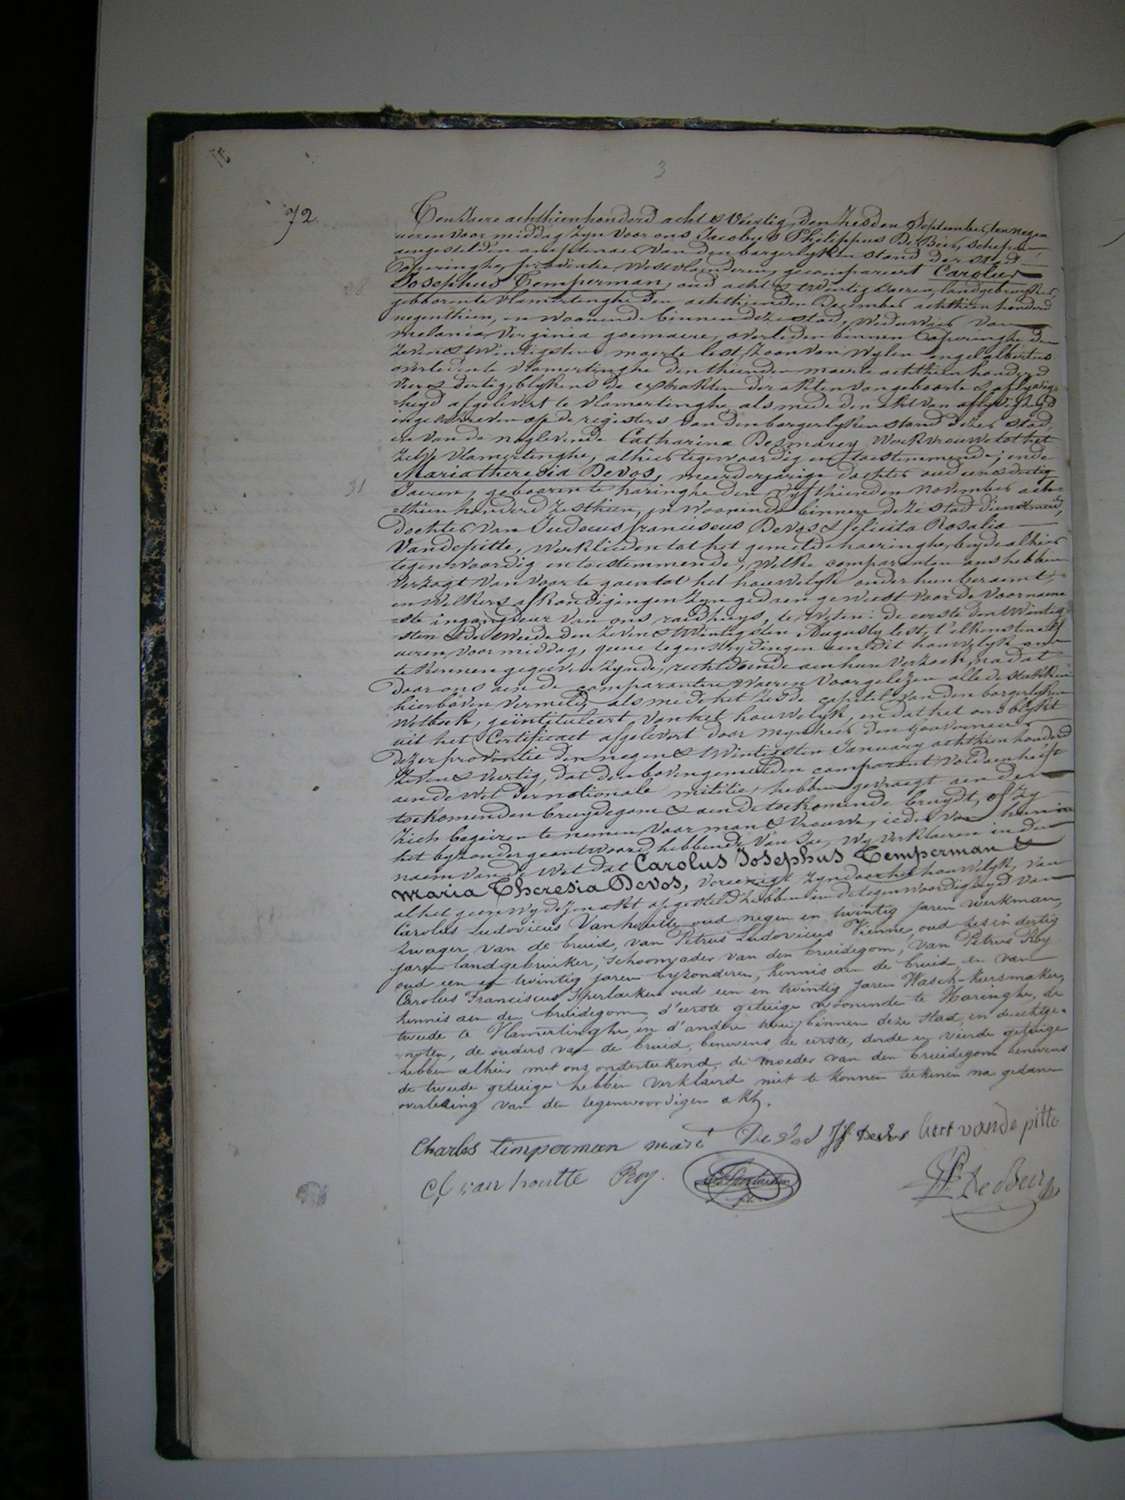 3
72.
Ten Jaere achthien honderd acht & Veertig, den Zesden September, ten negen
ueren voor middag, Zyn voor ons Jacobus Philippus De Beir, schepen
aengestelden amptenaer van den borgerlyken stand der stad
Poperinghe, provintie Westvlaenderen, gecompareert Carolus
28 Josephus Temperman, oud acht & twintig Jaeren, landgebruiker,
geboren te Vlamertinghe den achthienden December achthien honderd
negenthien, en woonende binnen deze stad, Weduwaer van
Melania Virginia Goemaere, overleden binnen Poperinghe den
Zeven & twintigsten maerte lest, Zoon van Wylen Engel albertus
overleden te Vlamertinghe den thienden maerte achthien honderd
vier & dertig, blykens de extrakten der akten van geboorte & aflyvig-
heyd afgelevert te Vlamertinghe, als mede den akt van aflyvigheyd
ingeschreven op de registers van den borgerlyken stand dezer stad,
en van de nog levende Catharina Desmarey, Werkvrouwe tot het
zelve Vlamertinghe, alhier tegenwoordig en toestemmende; ende
Maria theresia Devos, meerderjarige dochter oud een & dertig
31 Jaeren, geboren te haringhe den vyfthienden november ach-
thien honderd Zesthien, en Woonende binnen deze stad, dienstmeid,
dochter van Judocus franciscus Devos & felicita Rosalia
Vandepitte, Werklieden tot het gemelde haeringhe, beyde alhier
tegenwoordig en toestemmende; Welke comparanten ons hebben
verzogt van voor te gaen tot het houwelyk onder hun beraemt,
en Welkers afkondigingen Zyn gedaen geweest voor de voornaem-
ste ingangdeur van ons raedhuys, te Weten: de eerste den twintig-
sten & de tweede den Zeven & twintigsten Augusty lest, t'elkens ten elf
ueren voor middag, geene tegenstrydingen aen dit houwelyk ons
te kennen gegeven Zynde, rechtdoende aen hun verzoek, na dat
door ons aen de comparanten Waeren voorgelezen alle de stukken
hierboven vermeld, als mede het Zesde capittel van den borgerlyken
Wetboek, geintituleert, van het houwelyk, en dat het ons blykt
uit het Certificaet afgelevert door mynheer den gouverneur
dezer provintie den negen & twintigsten January achthien honderd
Zeven & veertig, dat den bovengemelden comparant voldaen heeft
aen de Wet der nationale militie, hebben gevraegt aen den
toekomenden bruydegom & aen de toekomende bruydt, of Zy
Zich begeiren te nemen voor man & vrouwe; ieder van hun in
het byzonder geantwoord hebbende van Ja, Wy verklaeren in den
naem van de Wet dat Carolus Josephus Temperman &
Maria Theresia Devos, vereenigt Zyn door het houwelyk, van
al het geene Wy dezen akt opgesteld hebben in de tegenwoordigheyd van
Carolus Ludovicus Vanhoutte oud negen en twintig jaren werkman,
zwager van de bruid, van Petrus Ludovicus Pienne, oud zes en dertig
jaren landgebruiker, schoonvader van den bruidegom, van Petrus Roy
oud een en twintig jaren byzonderen, kennis aen de bruid en van
Carolus Franciscus oud een en twintig jaren Wasch-keersmaker,
kennis aen de bruidegom, d'eerste getuige wonende te Haringhe, de
tweede te Vlamertinghe, en d'andere twee binnen deze Stad, en de echtge-
nooten, de ouders van de bruid, benevens de eerste, derde en vierde getuige
hebben alhier met ons onderteekend, de moeder van den bruidegom benevens
de tweede getuige hebben verklaerd niet te konnen teekenen na gedane
overlezing van den tegenwoordigen akt.
Charles timperman marie De Vos JF Devos vande pitte
C L van houtte Roy. JP De Beir